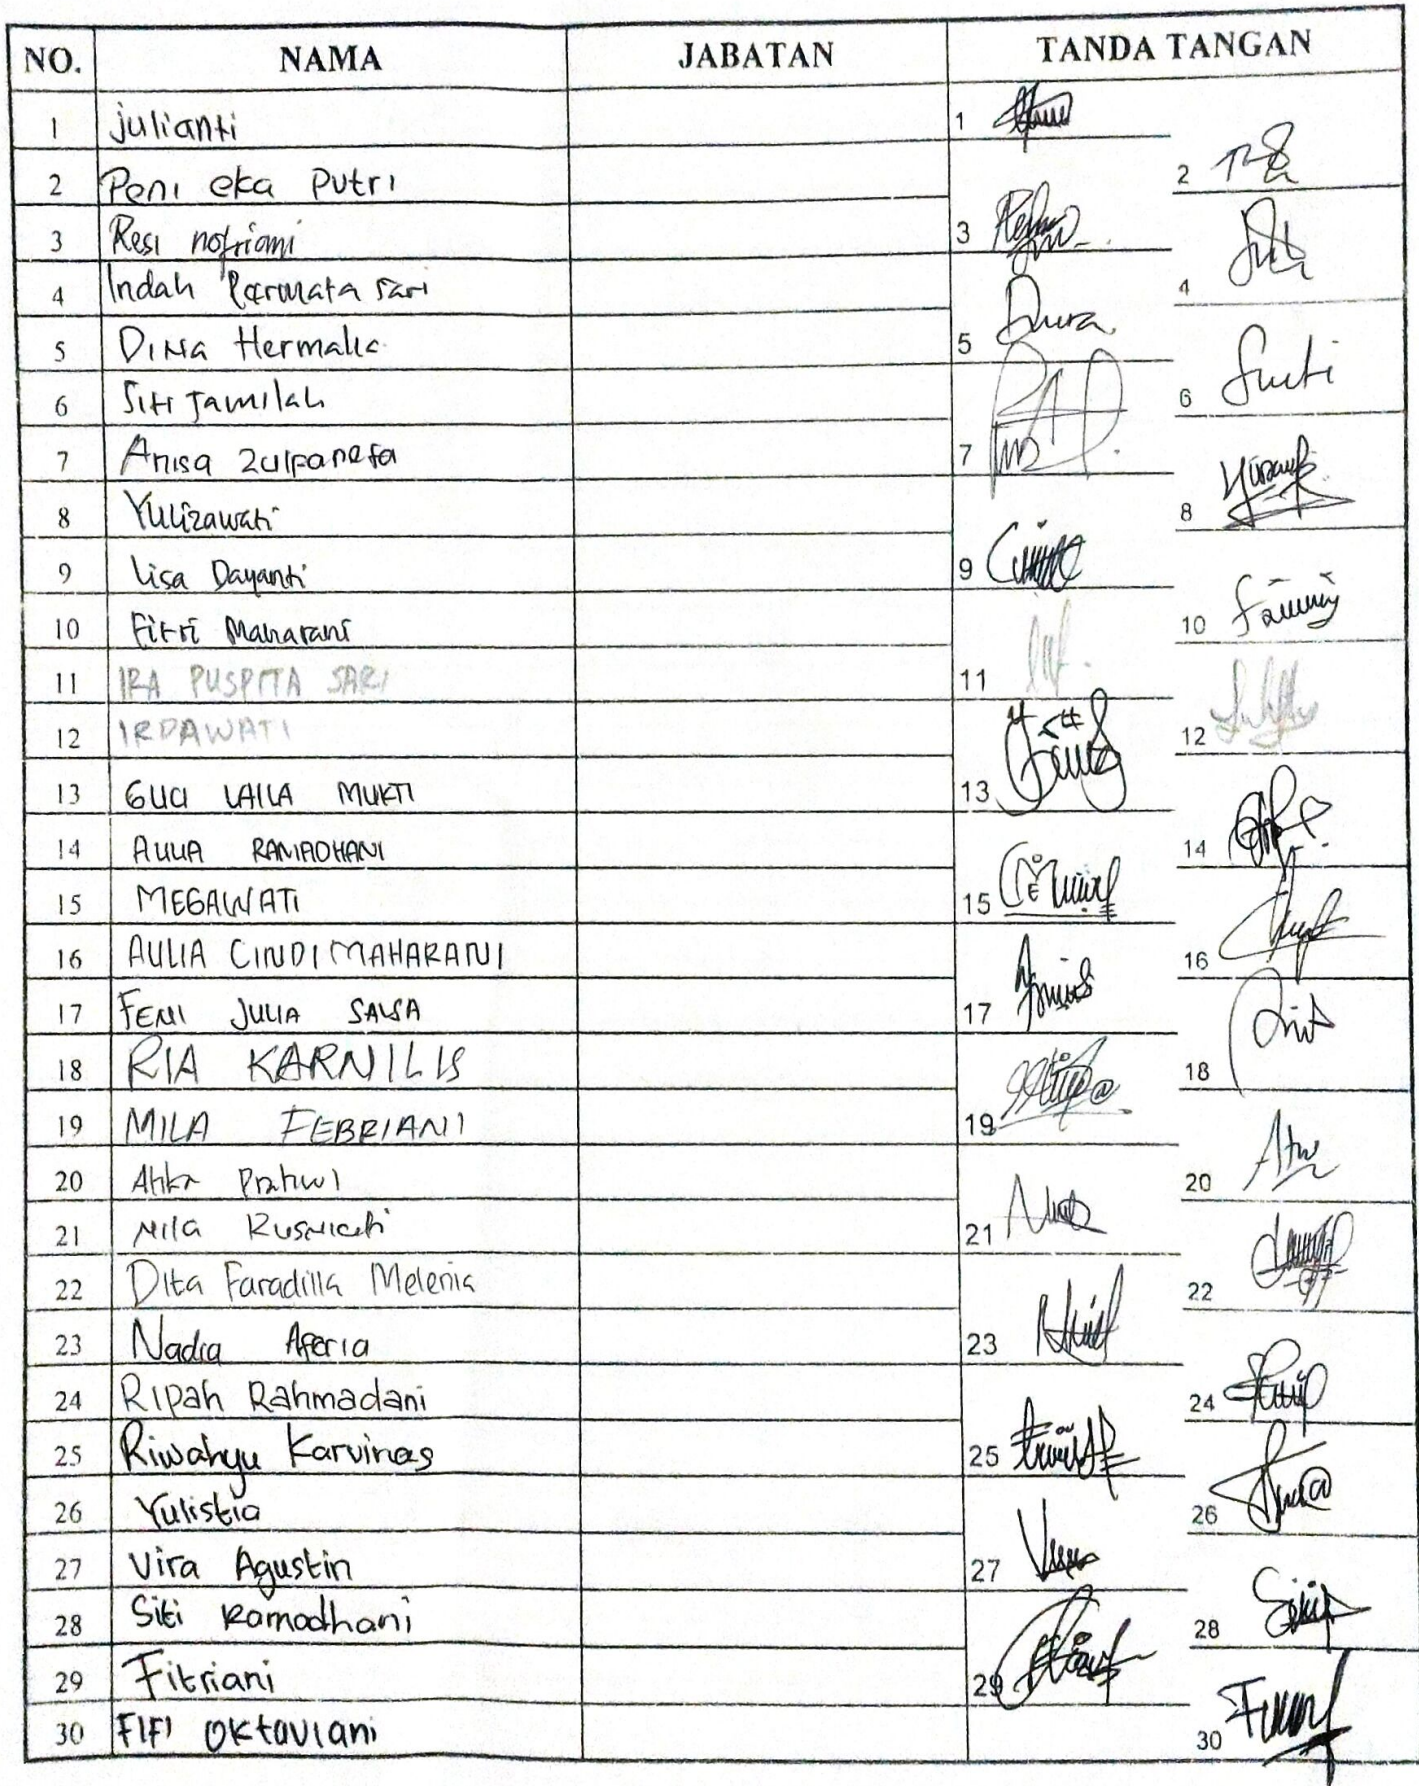 NO. NAMA JABATAN TANDA TANGAN
1 julianti 1
2 Peni eka Putri 2
3 Resi nofriani 3
4 Indah Permata sari 4
5 Dina Hermalia 5
6 Siti Jamilah 6
7 Anisa Zulpanefa 7
8 Yulizawati 8
9 Lisa Dayanti 9
10 Fitri Maharani 10
11 IRA PUSPITA SARI 11
12 IRDAWATI 12
13 LAILA MUKTI 13
14 AULIA RAMADHANI 14
15 MEGAWATI 15
16 AULIA CINDI MAHARANI 16
17 FENI JULIA SALSA 17
18 RIA KARNILIS 18
19 MILA FEBRIANI 19
20 Atika Pratiwi 20
21 Nila Kusniati 21
22 Dita Faradilla Melenia 22
23 Nadia Aferia 23
24 Ripah Rahmadani 24
25 Riwahyu Karvinas 25
26 Yulistia 26
27 Vira Agustin 27
28 Siti Ramadhani 28
29 Fitriani 29
30 FIFI Oktaviani 30